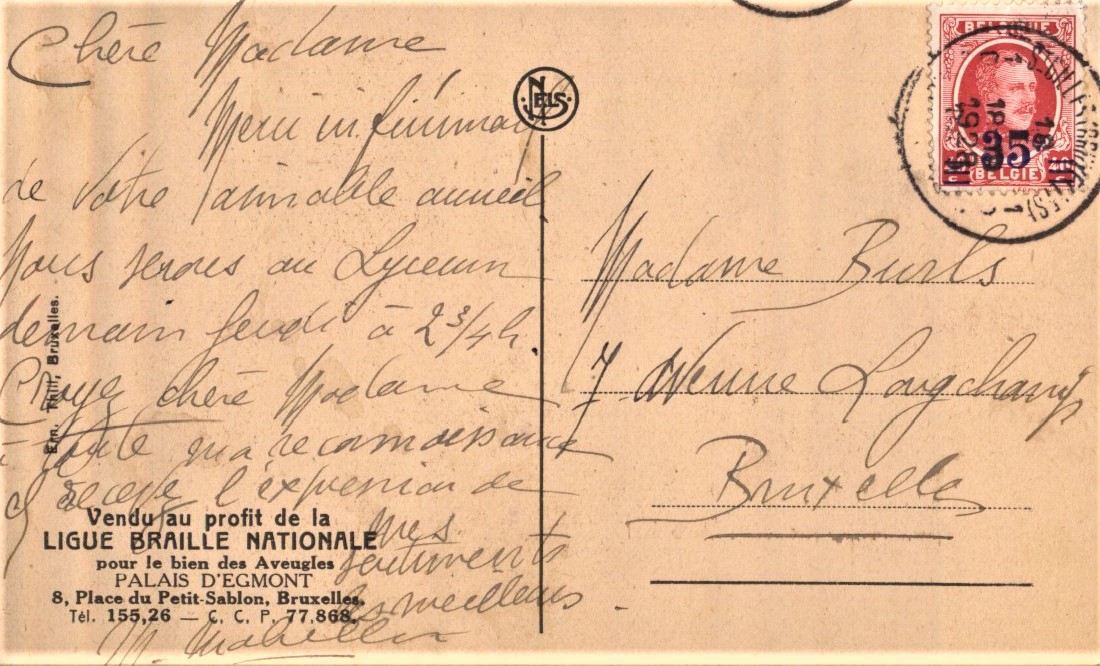 Chère Madame
Merci infiniment
de votre aimable accueil
Nous serons au Lyceum
demain jeudi à 2 3/4 h.
Croyez chère Madame
à toute ma reconnaissance
& recevez l'expression de
mes
sentiments
les meilleurs.
Vendu au profit de la
LIGUE BRAILLE NATIONALE
pour le bien des Aveugles
PALAIS D'EGMONT
8, Place du Petit-Sablon, Bruxelles.
Tél. 155,26 — C. C. P. 77.868.
Ern. Thill, Bruxelles.
NELS
BELGIQUE
35
40
BELGIË
1928
Madame Burls
7. Avenue Longchamp
Bruxelles